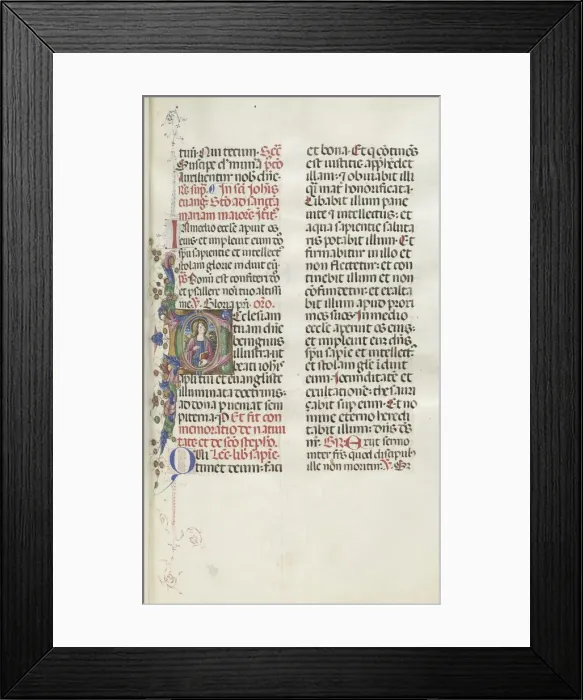 tuū. Nun tecum. Scē
Suscipe dñe munā
Auxilientur nob dñe
In scī johīs
euang. Stō ad sanctā
mariam maiorē
In medio eccle aperuit os
eius: et impleuit eum
spū sapientie et intellect
stolam glorie induit eū.
Bonum est confiteri
et psallere nōi tuo altissi
me. Gloria pri. oro.
Ecclesiam
tuam dñe
benignus
illustra: ut
beati iohis
apli tui et euangliste
illuminata doctrinis:
ad dona pueniat sem
piterna. p Et fit com
memoratio de natiui
tate et de scō stepho.
Lcc. lib sapie.
Qui timet deum: faci
et bona. Et q cōtinēs
est iustitie app̄hēdet
illam: et obuiabit illi
q̄ mat honorificata.
Cibabit illum pane
uite et intellectus: et
aqua sapientie saluta
ris potabit illum. Et
firmabitur in illo et
non flectetur: et con
tinebit illum et non
cōfundetur: et exalta
bit illum apud proxi
mos suos. In medio
eccle aperuit os eius:
et impleuit eū dñs
spū sapie et intellect:
et stolam glē iduit
eum. Jocunditate et
exultatione: thesauri
çabit sup eum. Et no
mine eterno heredi
tabit illum: dñs ds
nr. GR. Exiit sermo
inter frēs quod discipulus
ille non moritur. V. Et